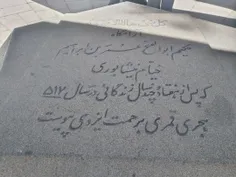 آرامگاه
حکیم ابوالفتح عمر بن ابراهیم
خیام نیشابوری
که پس از هفتاد و چند سال زندگانی در سال ۵۱۷
هجری قمری برحمت ایزدی پیوست